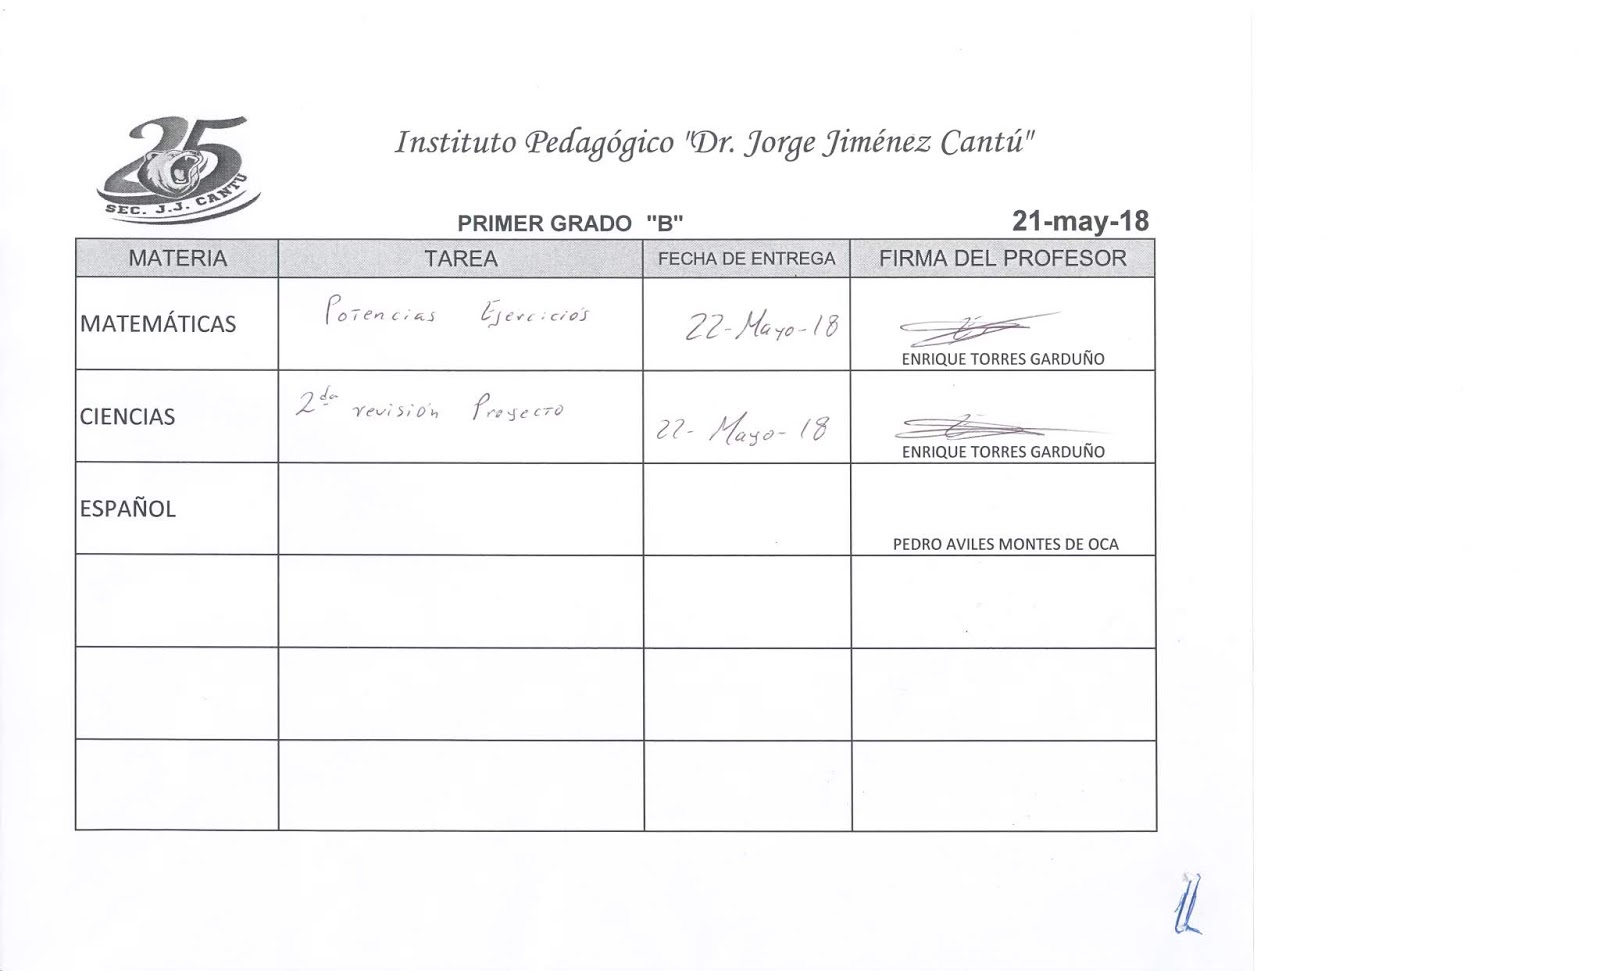 25
SEC. J.J. CANTÚ
Instituto Pedagógico "Dr. Jorge Jiménez Cantú"
PRIMER GRADO "B"
21-may-18
MATERIA TAREA FECHA DE ENTREGA FIRMA DEL PROFESOR
MATEMÁTICAS Potencias Ejercicios 22-Mayo-18
ENRIQUE TORRES GARDUÑO
CIENCIAS 2da revisión Proyecto 22-Mayo-18
ENRIQUE TORRES GARDUÑO
ESPAÑOL
PEDRO AVILES MONTES DE OCA